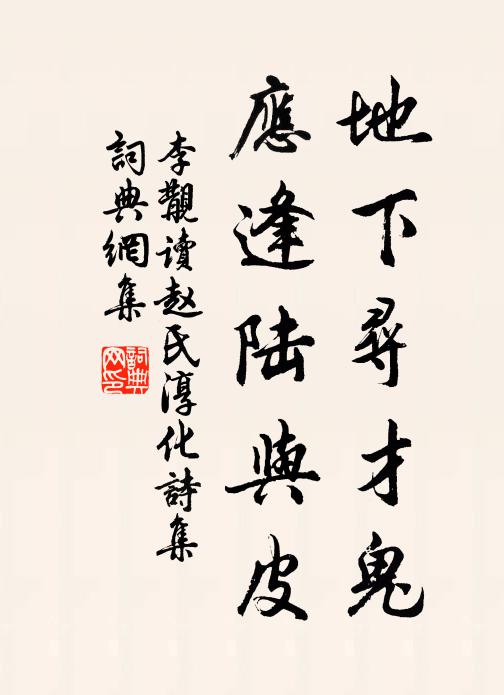 地下尋才鬼
應逢陸與皮
李觀读赵氏淳化詩集
詞典網集
詞典
网印